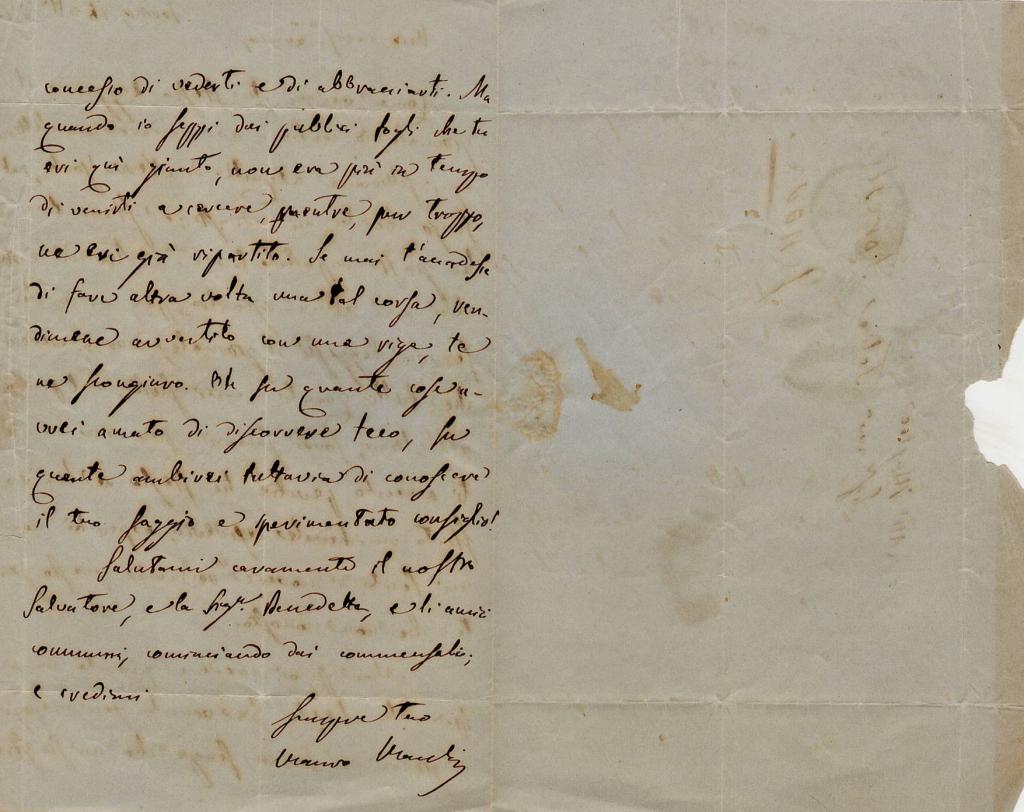 concesso di vederti e di abbracciarti. Ma
quando io seppi dai publici fogli che tu
eri quì giunto, non era più in tempo
di venirti a cercare, mentre, pur troppo,
ne eri già ripartito. Se mai t'accadesse
di fare altra volta una tal corsa, ren-
dimene avvertito con una riga, te
ne scongiuro. Oh su quante cose a-
vrei amato di discorrere teco, su
quante ambirei tuttavia di conoscere
il tuo saggio e sperimentato consiglio!
Salutami caramente il nostro
Salvatore, e la Sigra. Benedetta, e li amici
communi, cominciando dai commensali;
e credimi
Sempre tuo
Mauro